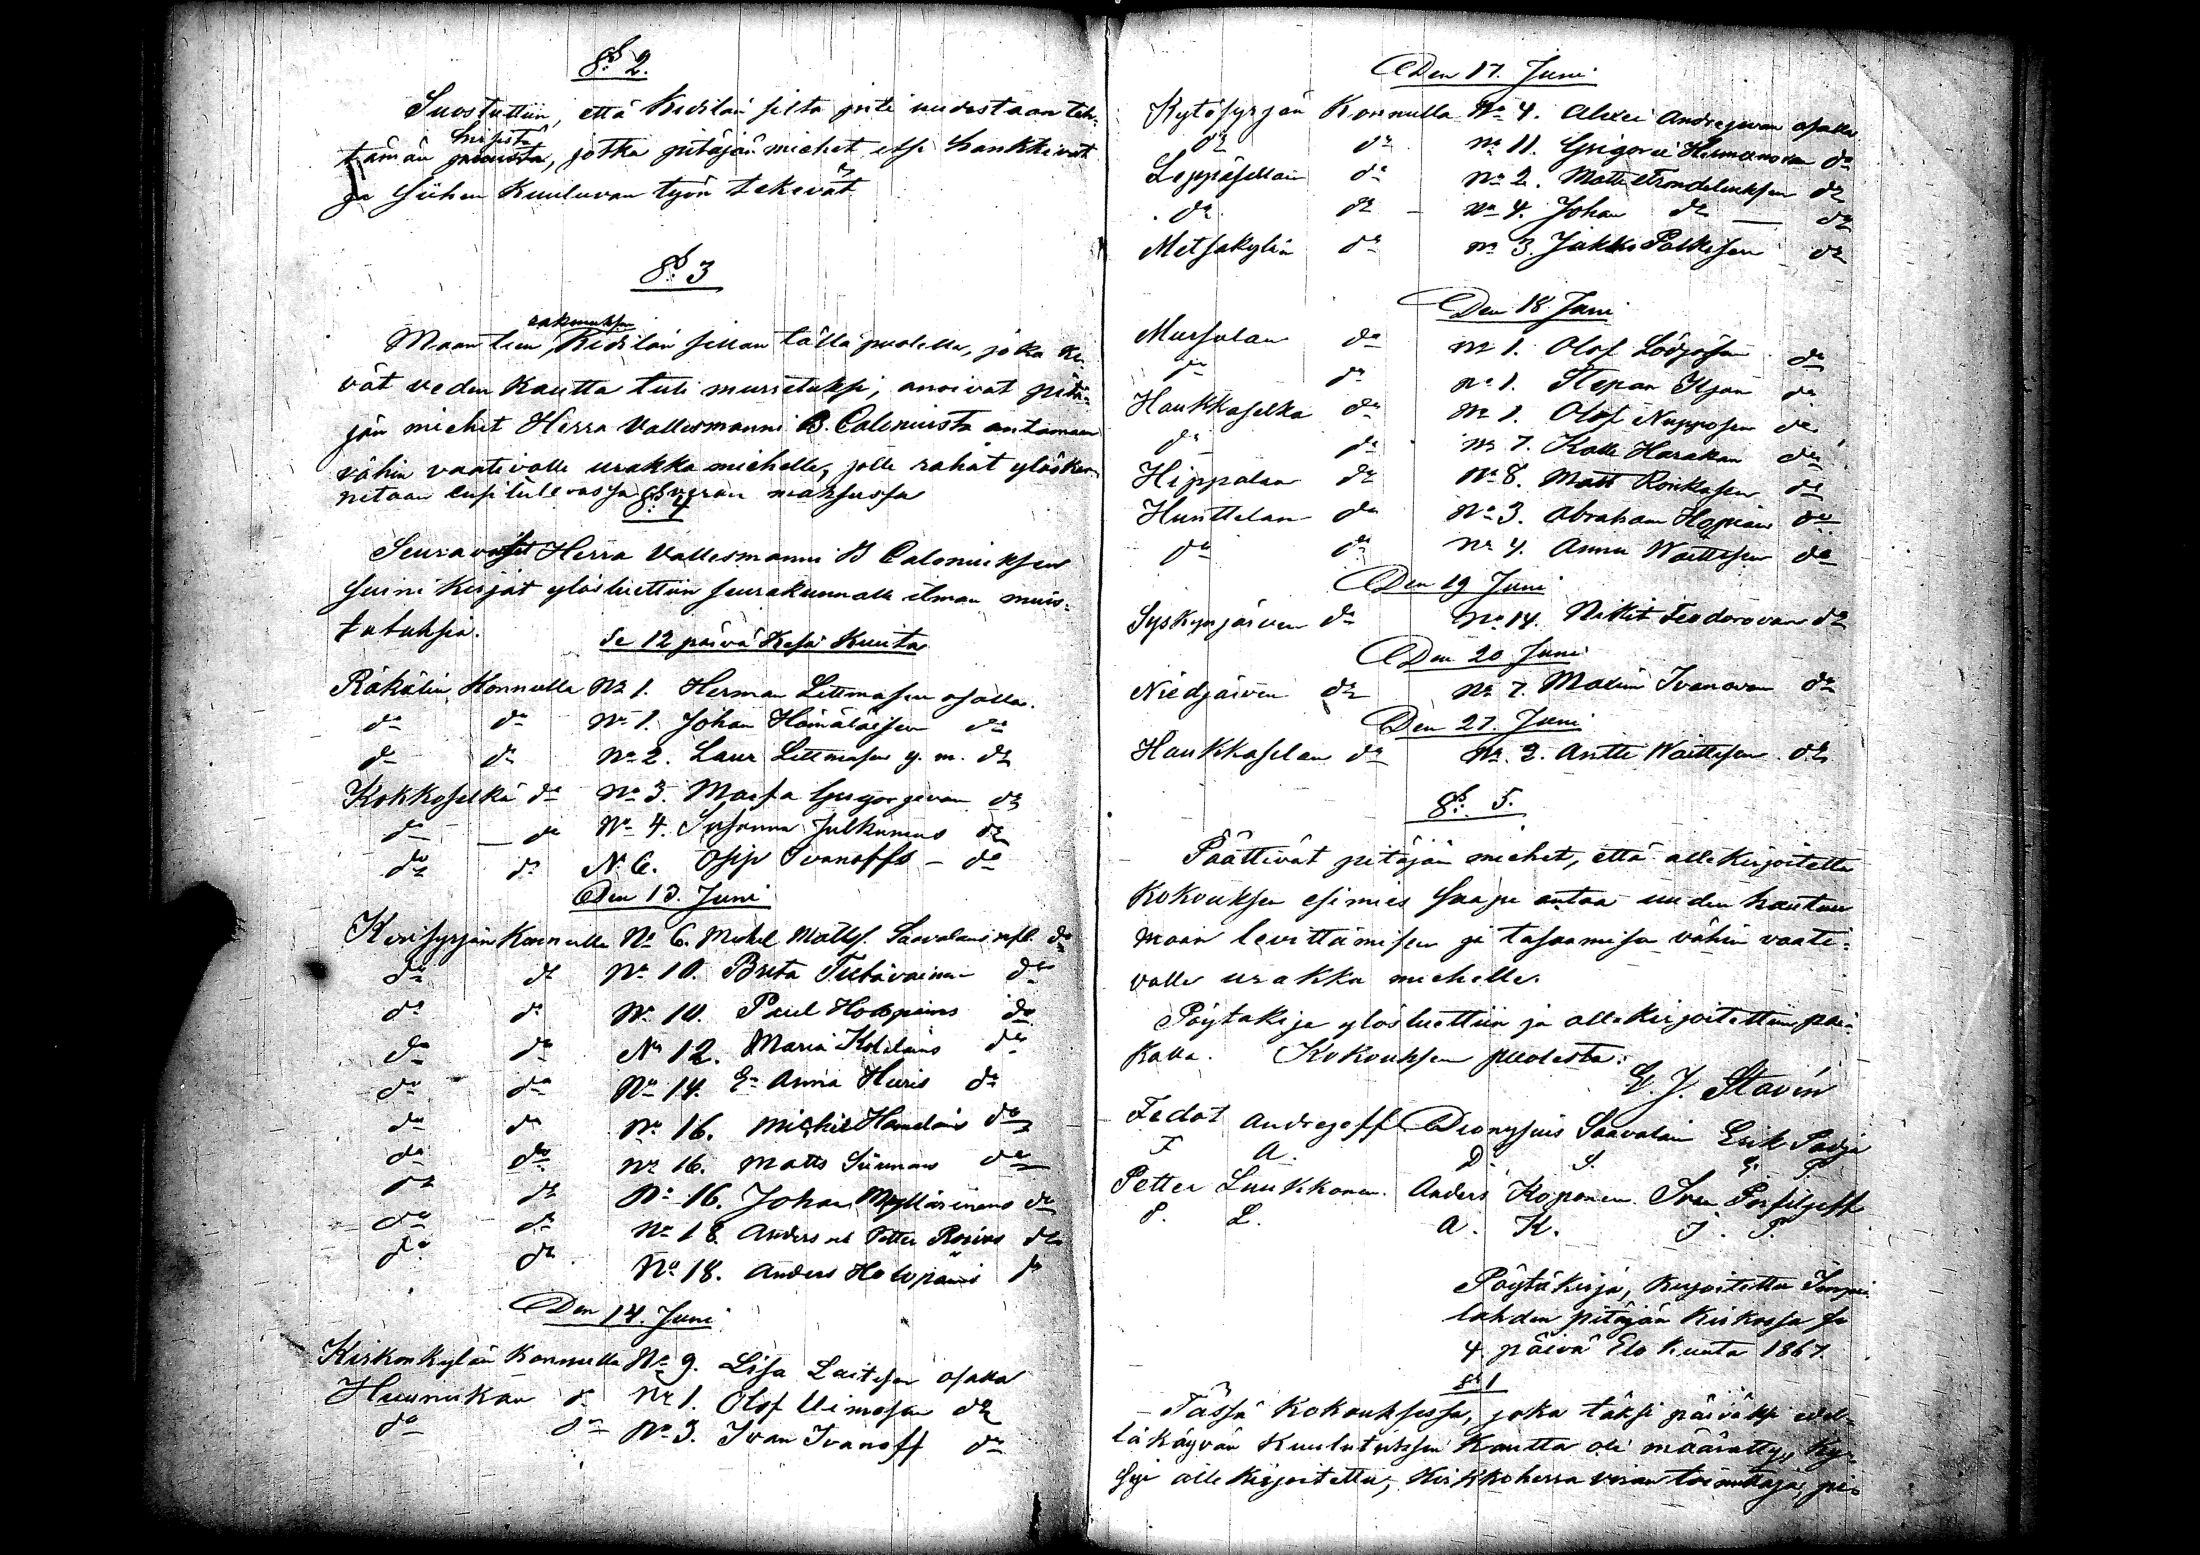 § 2.
Suostuttiin, että Kidilän silta piti uudestaan teh-
hirsistä
tämän, jotka pitäjän miehet itse hankkivat
ja siihen kuuluvan työn tekevät
§ 3
rakennuksen
Maantien Kidilän sillan tällä puolella, joka ke-
vät veden kautta tuli murretuksi, anoivat pitä-
jän miehet Herra Vallesmanni B. Caloniusta antamaan
vähin vaativalle urakka miehelle, jolle rahat ylöskan-
netaan ensi tulevassa veron maksussa
§ 4
Seuraavat Herra Vallesmanni B Caloniuksen
syini kirjat ylösluettiin seurakunnalle ilman muis-
tutuksia.
Se 12 päivä Kesä Kuuta
Räkälin Konnulla No 1. Herman Littmasen osalla.
do do No 1. Johan Hämäläisen do
do do No 2. Laur Littmasen y. m. do
Kokkoselkä do No 3. Marfa Gregorjevan do
do do No 4. Susanna Julkunens do
do do N. 6. Osip Ivanoffs - do
Den 13. Juni
Kerisyrjän Konnulla No 6. Mickel Matts. Saavalaus do
do do No 10. Brita Tietäväinen do
do do No 10. Paul Hodopains do
do do No 12. Maria do
do do No 14. Anna Huris do
do do No 16. Mickel do
do do No 16. Matts Siunans do
do do No 16. Johan Myllärinens do
do do No 18. Anders och Petter do
do do No 18. Anders Holopains do
Den 14. Juni
Kirkonkylän Konnulla No 9. Lisa Laitisen osalla
Huunukan do No 1. Olof Uimosen do
do do No 3. Ivan Ivanoff do
Den 17. Juni
Kytösyrjän Konnulla No 4. Alexei Andrejevan osalla
do do No 11. Grigorei Hermanovan do
Leppäsellän do No 2. Matti do
do do No 4. Johan do do
Metsäkylän do No 3. Jakki Pakkisen do
Den 18 Juni
Mursulan do No 1. Olof Lödjösen do
do do No 1. Stepan Iljan do
Haukkaselka do No 1. Olof Nupposen do
do do No 7. Kalle Harakan do
Hippolan do No 8. Matts Ronkasen do
Hunttilan do No 3. Abraham do
do do No 4. Anna Waittisen do
Den 19 Juni
Syskynjärven do No 14. Nikit Feodorovan do
Den 20 Juni
Niedjärven do No 7. Maxim Ivanovan do
Den 27. Juni
Haukkaselan do No 2. Antti Waittisen do
§ 5.
Päättivät pitäjän miehet, että allekirjoitettu
Kokouksen esimies saapi antaa uuden hautaus
maan levittämisen ja tasaamisen vähin vaati-
valle urakka miehelle.
Pöytäkirja ylösluettiin ja allekirjoitettiin pai-
kalla. Kokouksen puolesta:
G. J. Stavén
Fedot Andrejeff Dionysius Saavalain Erik Padja
F A. D. S. E. P.
Petter Luukkonen. Anders Koponen. Ivan Porfiljeff
P. L. A. K. I. P.
Pöytäkirja, kirjoitettu Impi-
lahden pitäjän kirkossa se
4 päivä Elo Kuuta 1867.
§ 1
Tässä kokouksessa, joka täksi päiväksi edel-
läkäyvän kuulutuksen kautta oli määrätty, ky-
syi allekirjoitettu, kirkkoherra viran toimittaja, pi-